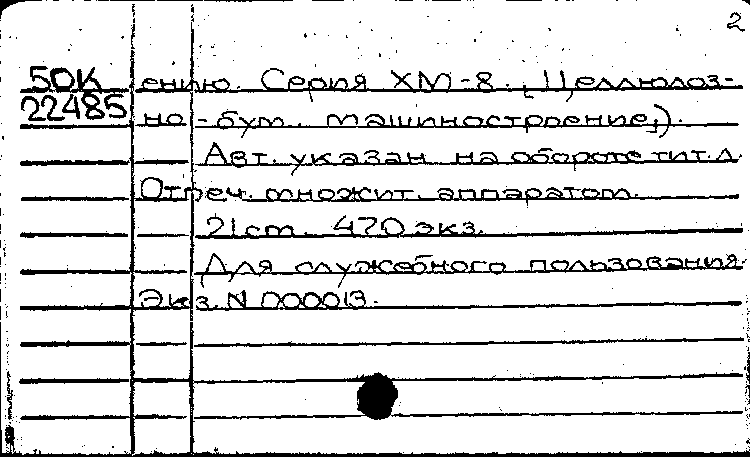 2
50К ению. Серия ХМ-8. „Целлюлоз-
22485 но-бум. машиностроение„).
Авт. указан на обороте тит.л.
Отпеч. множит. аппаратом.
21 cm. 470 экз.
Для служебного пользования.
Экз. N 000013.